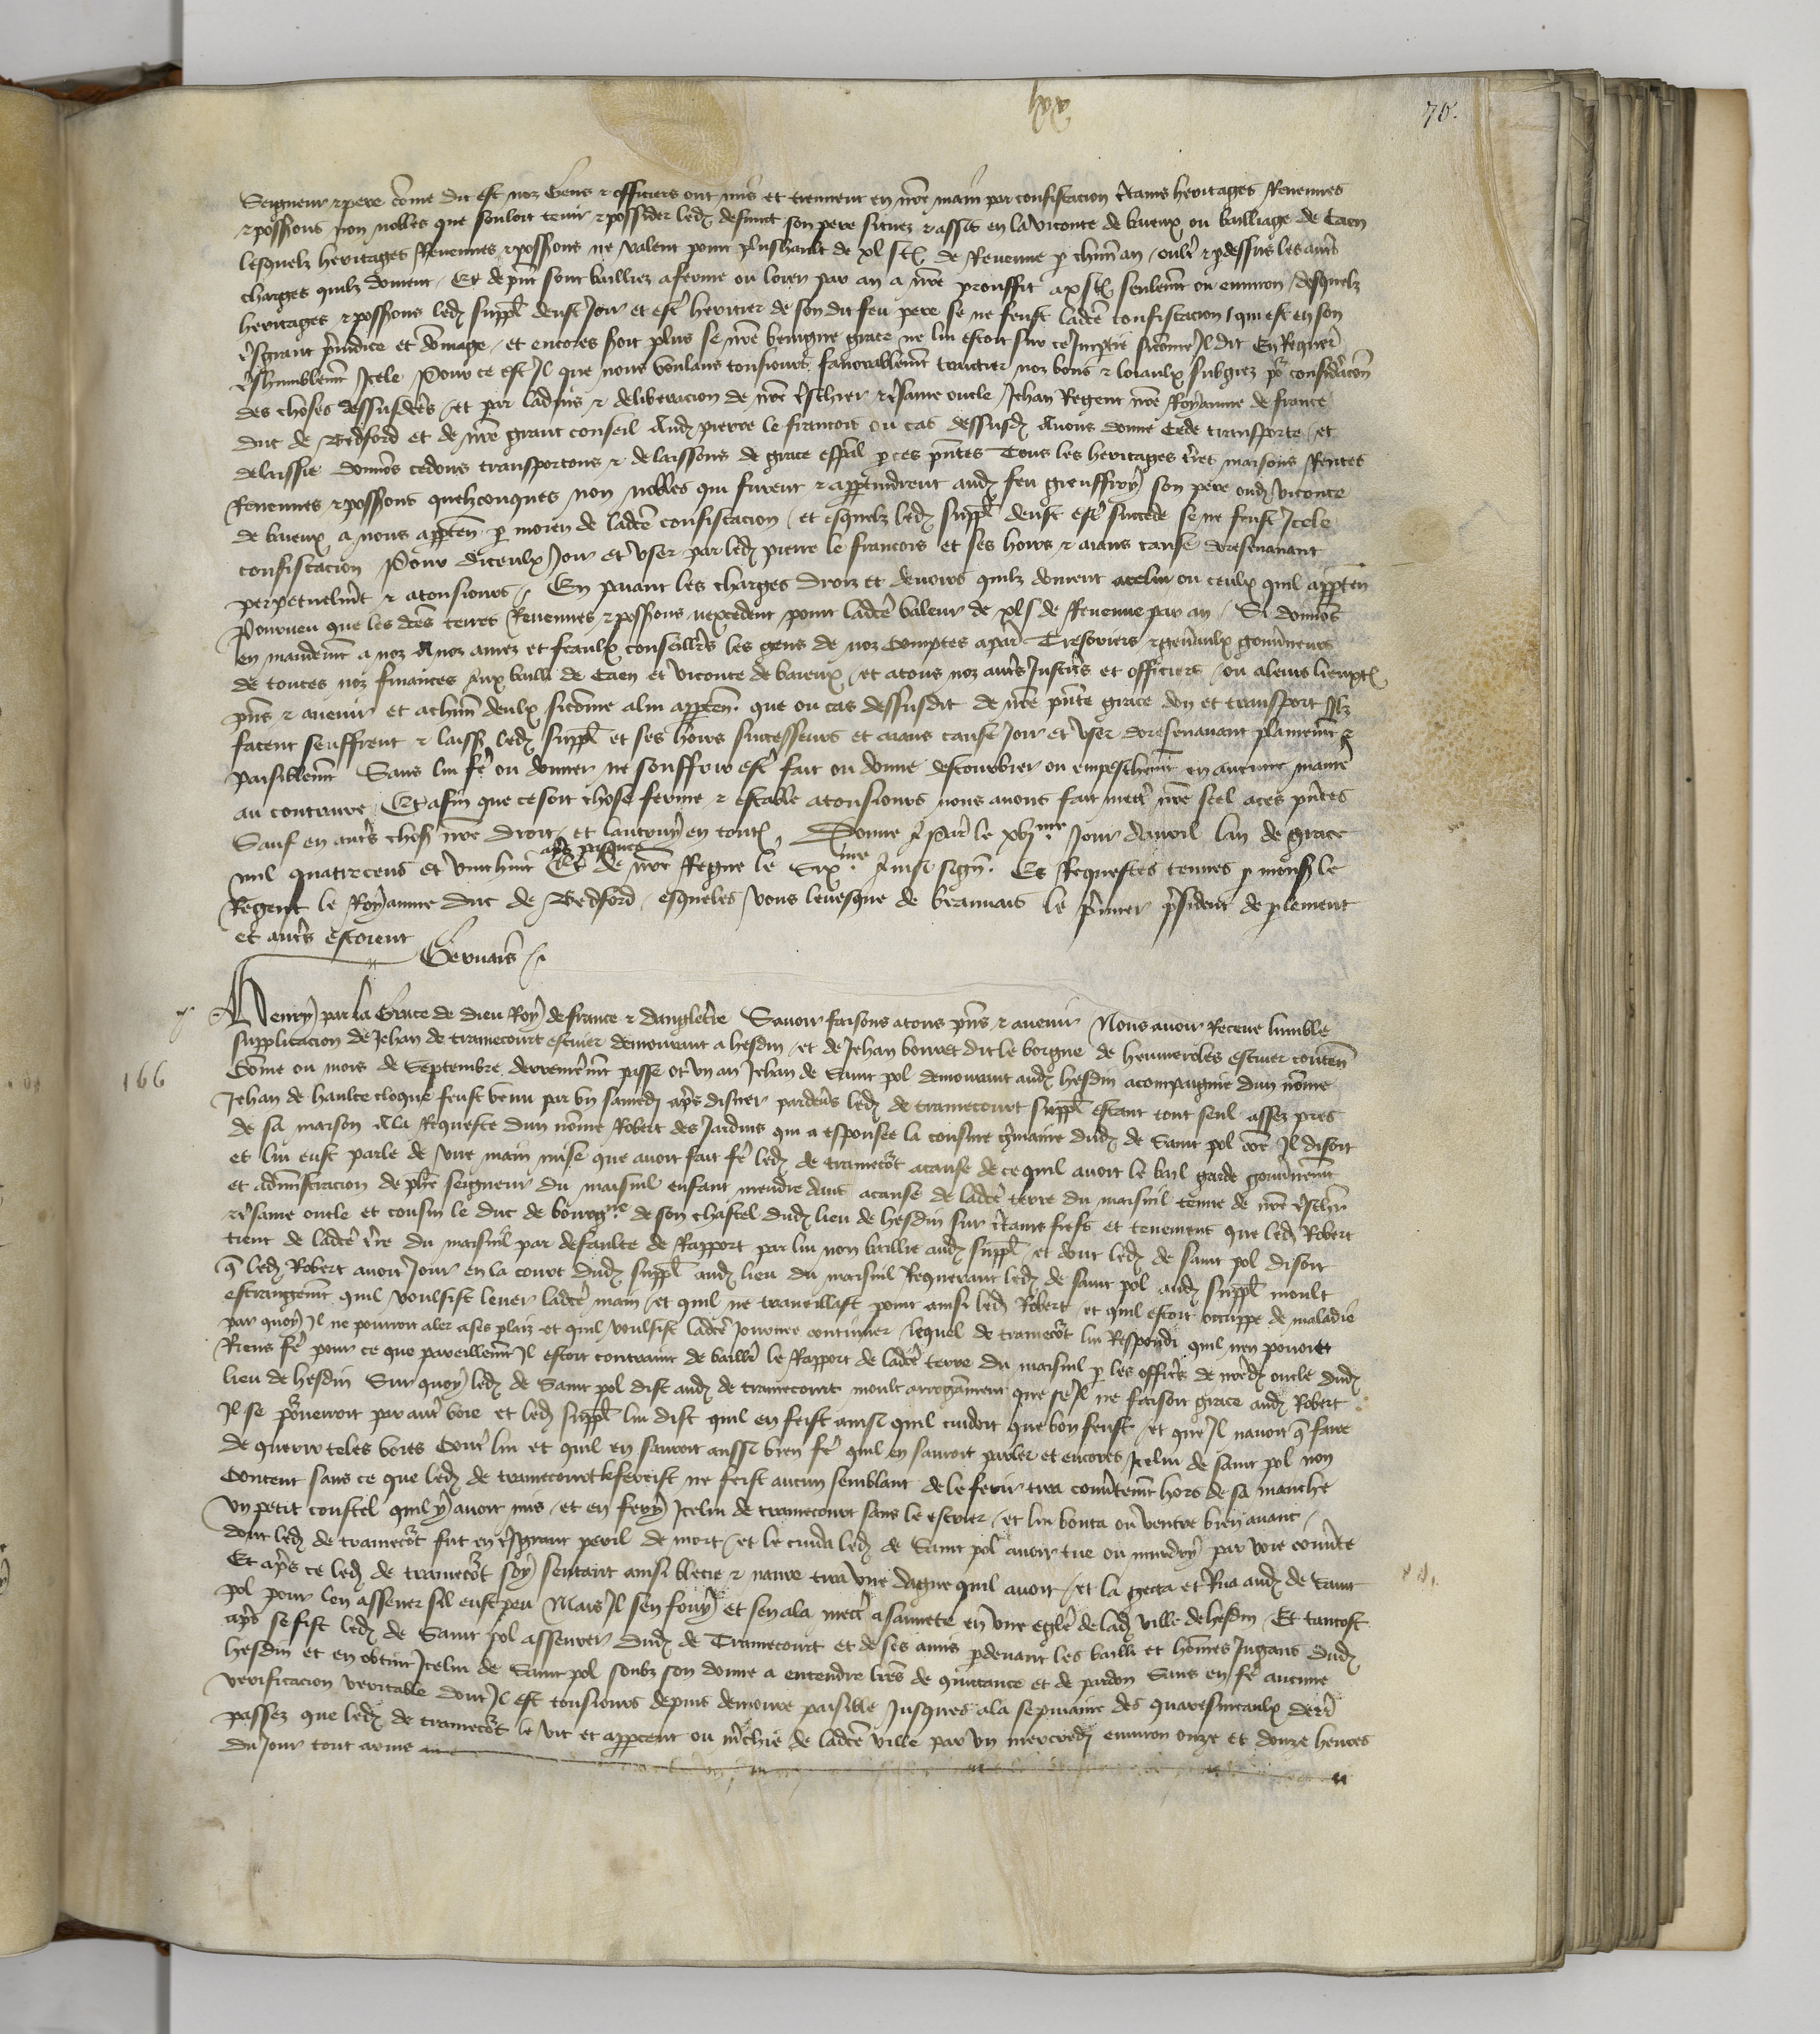 lxx
70.
Seigneur et pere come dit est noz gens et officiers ont mis et tiennent en nre main par confiscacion certains heritages Revenues
et possessions non nobles que souloit tenir et possider led defunct son pere situez et assis en la viconte de baieux ou bailliage de Caen
lesquelz heritages Revenues et possessions ne valent point plushault de xl s t de Revenue p chun an oultre et pdessus les autres
charges quilz doivent Et de pnt sont bailliez a ferme ou loyer par an a nre prouffit a x s t seulemt ou environ desquelz
heritages et possessions led suppl deust Joir et estre heritier de son dit feu pere se ne feust ladce confiscacion qui est en son
tresgrant preiudice et domage et encores soit plus se nre benigne grace ne lui estoit sur ce Impartie sicome Il dit En Requerant
treshumblemt Icele Pour ce est Il que nous voulans tousiours favorablemt traictier noz bons et loiaulx subgiez pour consideracion
des choses dessusdces et par ladvis et deliberacion de nre treschier et tresame oncle Jehan Regent nre Royaume de france
duc de Bedford et de nre grant conseil Aud pierre le francois ou cas dessusd Avons donne Cede transporte et
delaissie donnons cedons transportons et delaissons de grace especial p ces pntes Tous les heritages terres maisons Rentes
Revenues et possessions quelzconques non nobles qui furent et apptindrent aud feu gieuffroy son pere oud viconte
de baieux a nous apptenans p moien de ladce confiscacion et esquelz led suppl deust estre succede se ne feust Icele
confiscacion Pour diceulx Joir et user par led pierre le francois et ses hoirs et aians cause doresenavant
perpetuelmt et a tousiours En paiant les charges droiz et devoirs quilz doivent a celui ou ceulx quil apptendra
Pourveu que les dces terres Revenues et possessions nexcedent point ladce valeur de xl s de Revenue par an Si donnons
en mandemt a noz A noz amez et feaulx conseillers les gens de noz comptes a paris Tresoriers et generaulx gouverneurs
de toutes noz finances Aux bailli de Caen et viconte de baieux et a tous noz autres Justiciers et officiers ou a leurs lieuxten
pns et avenir et a chun deulx sicome a lui apptendra que ou cas dessusdit de nre pnte grace don et transport Ilz
facent seuffrent et laiss led suppl et ses hoirs successeurs et aians cause Joir et user doresenavant plainemt et
paisiblemt Sans lui fe ou donner ne souffrir estre fait ou donne destourbier ou empeschemt en aucune maniere
au contraire Et afin que ce soit chose ferme et estable a tousiours nous avons fait mectre nre seel a ces pntes
Sauf en autres choses nre droit et lautruy en toutes Donne a Paris le xvjme Jour davril lan de grace
mil quatrecens et vint huit apres pasques Et de nre Regne le Sixme Ainsi signe Es Requestes tenues p monsr le
Regent le Royaume duc de Bedford esqueles vous levesque de beauvais le premier president de plement
et autres estoient
Gervais
Henry par la Grace de dieu Roy de france et dangleterre Savoir faisons a tous pns et avenir Nous avoir Receue lumble
supplicacion de Jehan de tramecourt escuier demourant a hesdin et de Jehan bournel dit le borgne de henneveles escuier conten
166
Come ou mois de Septembre derremt passe ot un an Jehan de Saint pol demourant aud hesdin acompaignie dun nome
Jehan de haulte cloque feust venu par un samedi apres disner pardevers led de tramecourt suppl estant tout seul assez pres
de sa maison A la Requeste dun nome Robert des Jardins qui a espousee la cousine germaine dud de Saint pol come Il disoit
et lui eust parle de une main mise que avoit fait fe led de tramecourt a cause de ce quil avoit le bail garde gouvernemt
et administracion de phe seigneur du maisnil enfant mendre dans a cause de ladce terre du maisnil tenue de nre treschr
et tresame oncle et cousin le duc de bourgne de son chastel dud lieu de hesdin sur certains fiefs et tenemens que led Robert
tient de ladce terre du maisnil par defaulte de Rapport par lui non baillie aud suppl et dont led de saint pol disoit
que led Robert avoit Jour en la court dud suppl aud lieu du maisnil Requerant led de saint pol aud suppl moult
estrangemt quil voulsist lever ladce main et quil ne travaillast point ainsi led Robert et quil estoit occuppe de maladie
par quoy Il ne pourroit aler a ses plaiz et quil voulsist ladce Journee continuer lequel de tramecourt lui Respondi quil nen povoit
Riens fe pour ce que pareillemt Il estoit contraint de baillier le Rapport de ladce terre du maisnil p les officiers de nred oncle dud
lieu de hesdin Sur quoy led de Saint pol dist aud de tramecourt moult arrogament que se Il ne faisoit grace aud Robert
Il se pourverroit par autre voie et led suppl lui dist quil en feist ainsi quil cuidoit que bon feust et que Il navoit que faire
de querir teles voies Contre lui et quil en sauroit aussi bien fe quil en sauroit parler et encores Icelui de saint pol non
Content sans ce que led de tramecourt le ferist ne feist aucun semblant de le ferir tira couvertemt hors de sa manche
un petit coustel quil y avoit mis et en fery Icelui de tramecourt sans le escrier et lui bouta ou ventre bien avant
dont led de tramecourt fut en tresgrant peril de mort et le cuida led de Saint pol avoir tue ou murdry par voie couverte
Et apres ce led de tramecourt soy sentant ainsi blecie et navre tira une dague quil avoit et la gecta et Rua aud de saint
pol pour len assener sil eust peu Mais Il sen fouy et sen ala mectre a sauvete en une eglise de lad ville de hesdin Et tantost
apres se fist led de Saint pol asseurer dud de Tramecourt et de ses amis pdevant les bailli et homes Jugans dud
hesdin et en obtint Icelui de Saint pol soubz son donne a entendre lres de quictance et de pardon Sans en fe aucune
verificacion veritable dont Il est tousiours depuis demoure paisible Jusques a la sepmaine des quaresmeaulx derr
passez que led de tramecourt le vit et appceut ou marchie de ladce ville par un mercredi environ onze et douze heures
du Jour tout arme